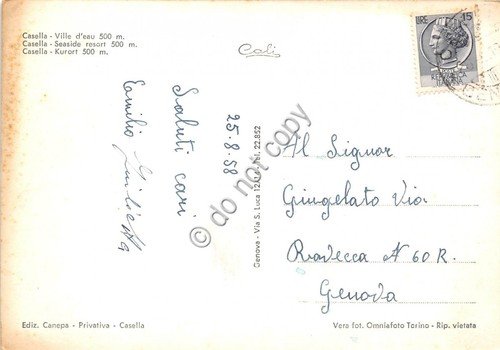 Casella - Ville d'eau 500 m.
Casella - Seaside resort 500 m.
Casella - Kurort 500 m.
Cali
LIRE 15
25.8.58
Saluti cari
Emilio Giulietta
Genova - Via S. Luca 12/14 - Tel. 22.852
do not copy
Al Signor
Giungelato Via
Ravecca N 60 R.
Genova
Ediz. Canepa - Privativa - Casella
Vera fot. Omniafoto Torino - Rip. vietata